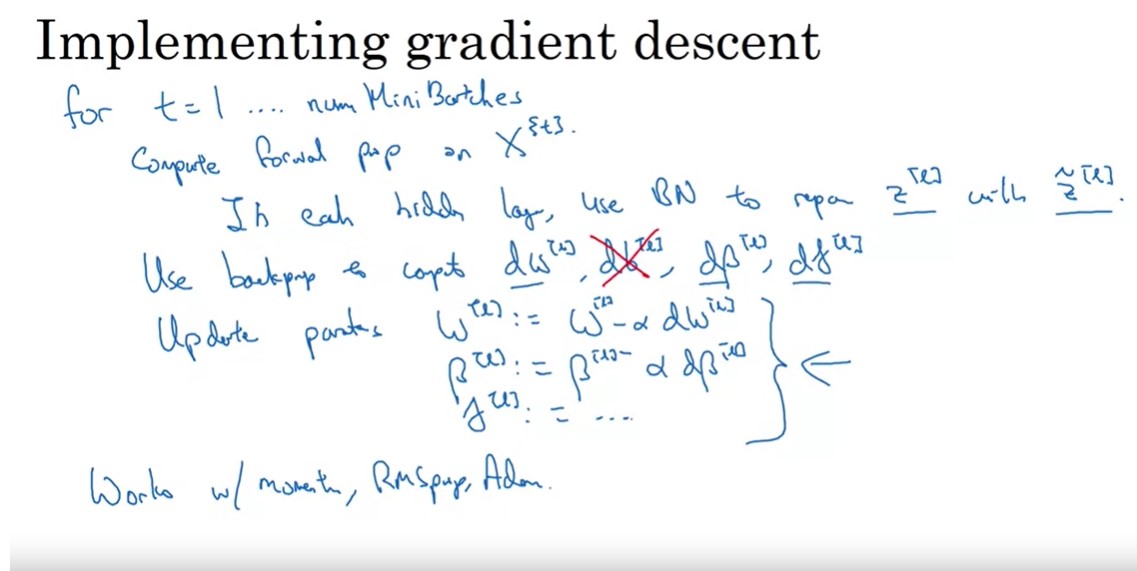 Implementing gradient descent
for t = 1 .... num Mini Batches
Compute forwal pop on X^{t}.
In eah hidden lay, use BN to repa z^[l] with z̃^[l].
Use backprop to compt dw^[l], db^[l], dβ^[l], dγ^[l]
Update parates w^[l] := w^[l] - α dw^[l]
β^[l] := β^[l] - α dβ^[l]
γ^[l] := ....
Works w/ moment, RMSprop, Adam.